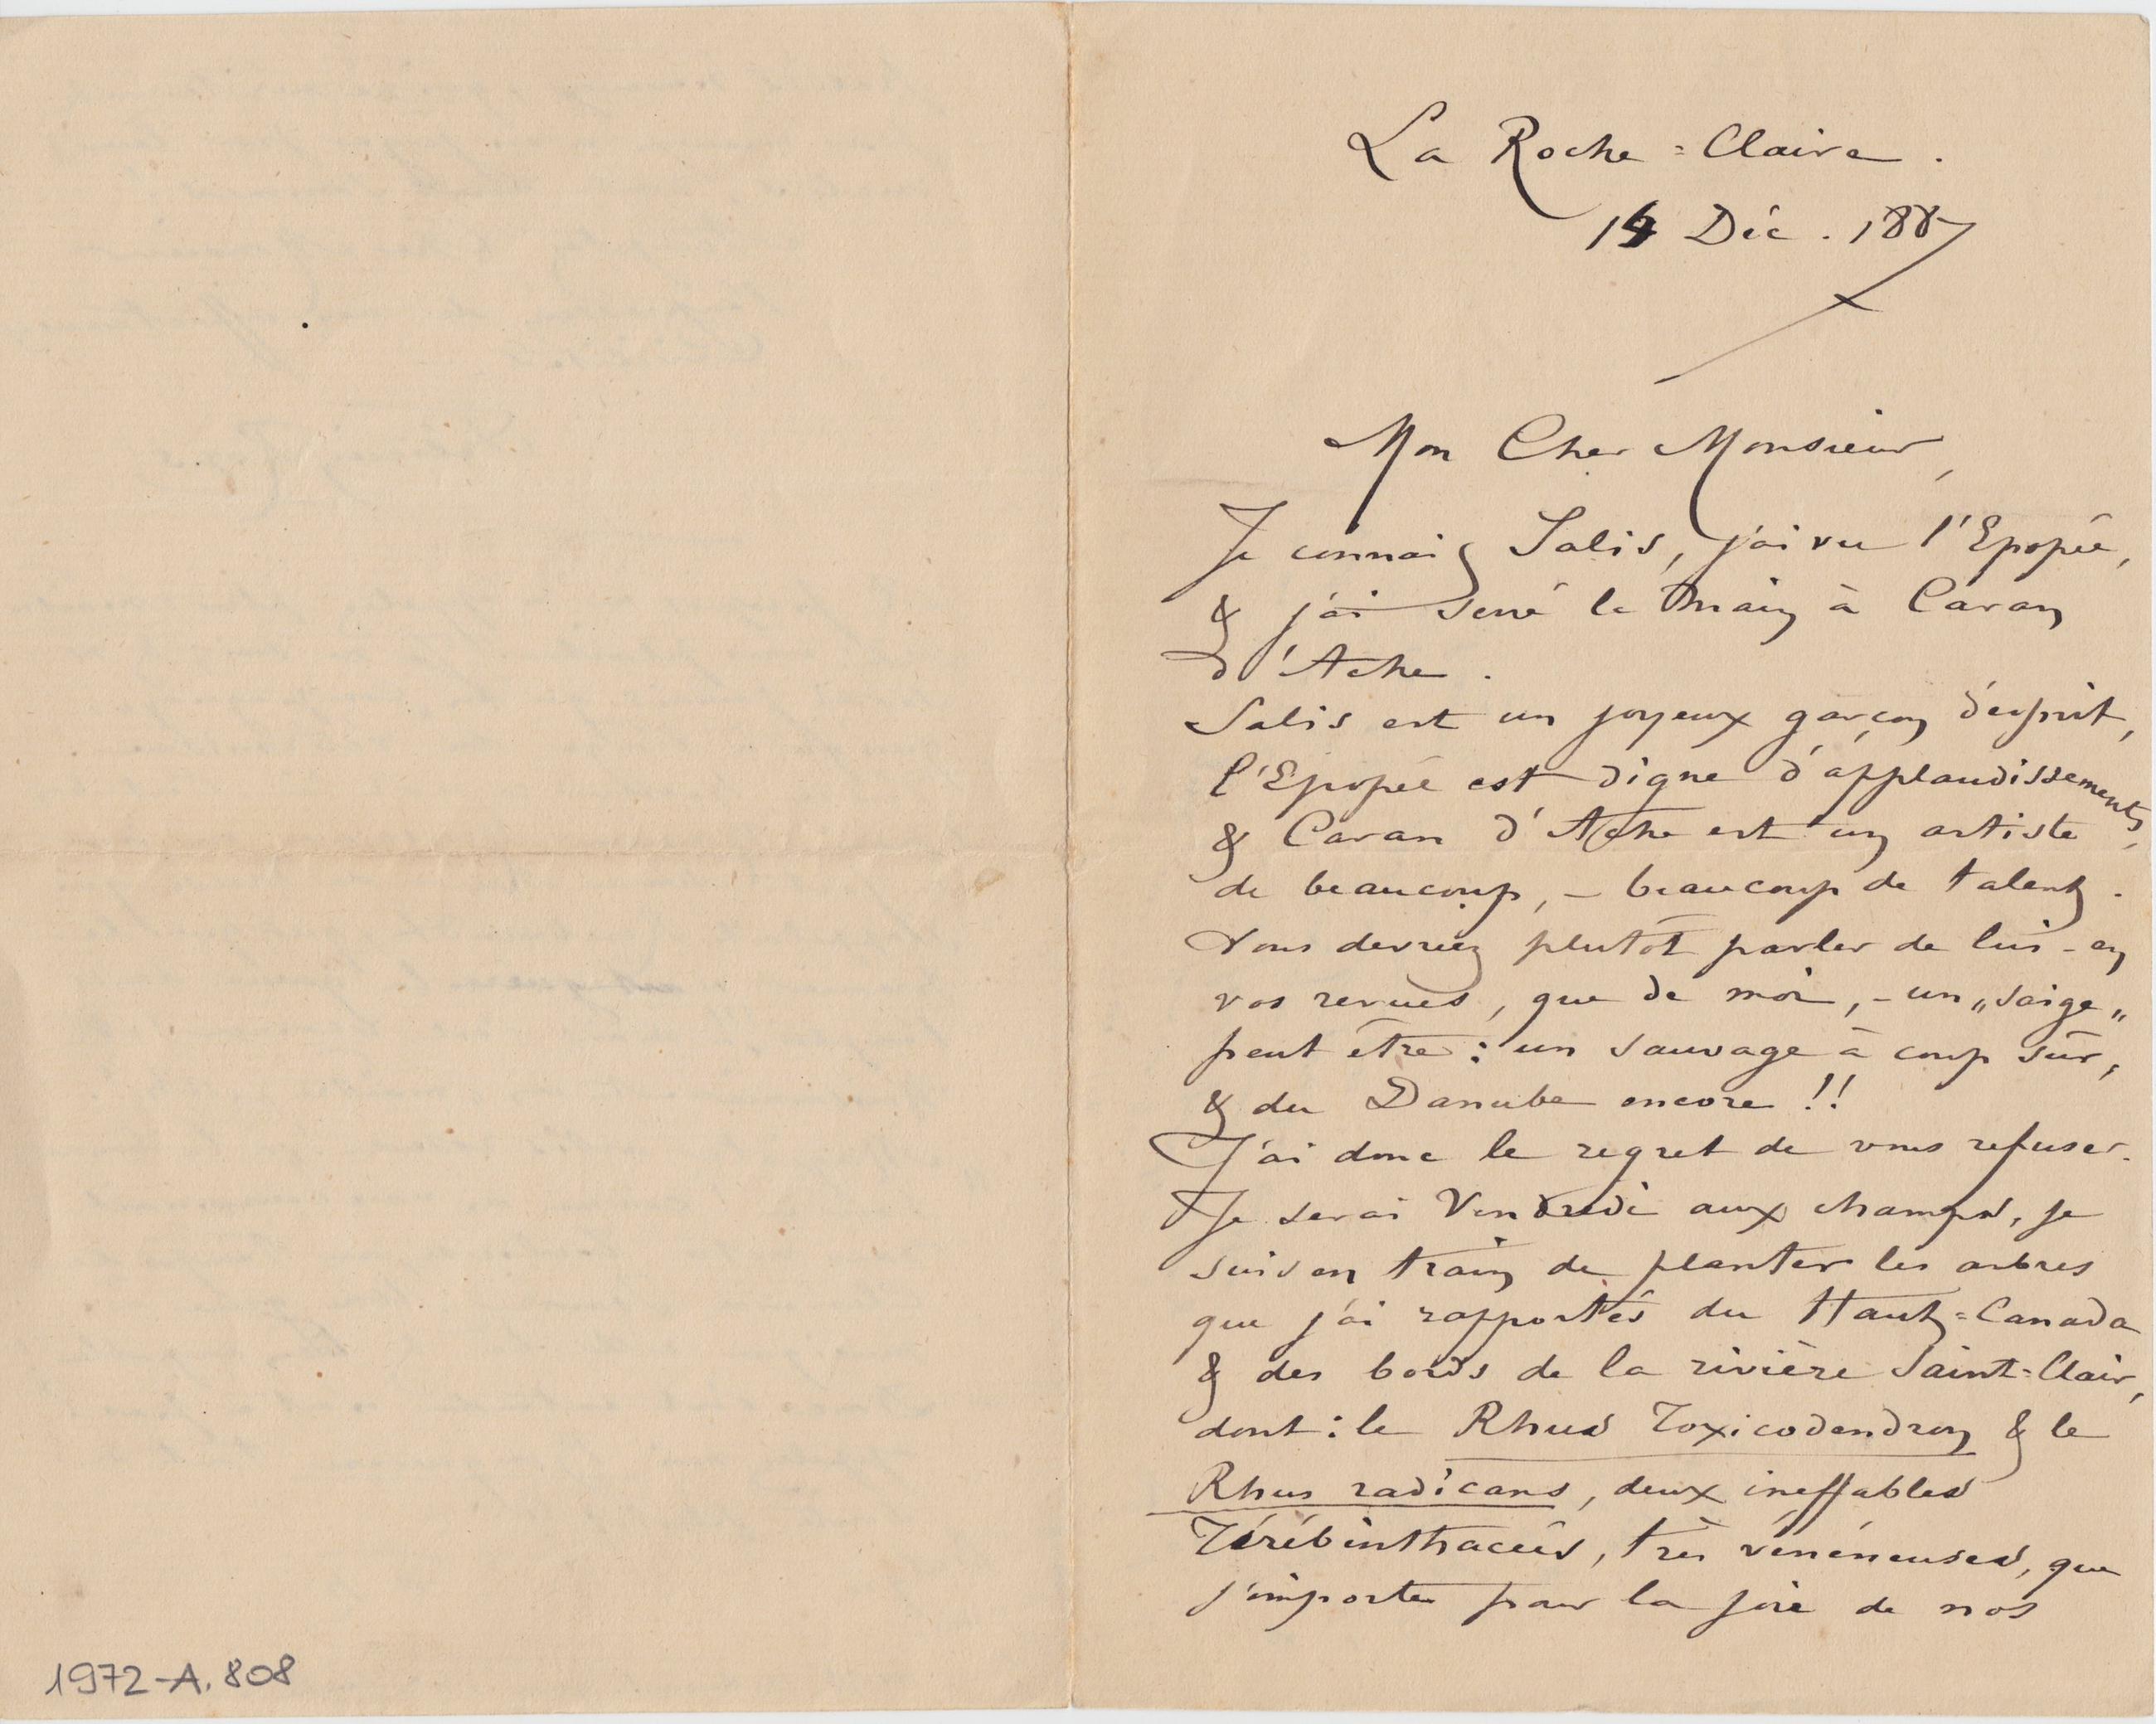 La Roche=Claire.
14 Déc. 1887
Mon Cher Monsieur,
Je connais Salis, j'ai vu l'Epopée,
& j'ai serré la main à Caran
d'Ache.
Salis est un joyeux garçon d'esprit,
l'Epopée est digne d'applaudissements,
& Caran d'Ache est un artiste
de beaucoup, – beaucoup de talent.
Vous devriez plutôt parler de lui – en
vos revues, que de moi, – un "saige"
peut être : un sauvage à coup sûr,
& du Danube encore !!
J'ai donc le regret de vous refuser.
Je serai Vendredi aux champs, je
suis en train de planter les arbres
que j'ai rapportés du Haut=Canada
& des bords de la rivière Saint=Clair,
dont : le Rhus Toxicodendron & le
Rhus radicans, deux ineffables
Térébinthacées, très vénéneuses, que
j'importe pour la joie de nos
1972-A.808